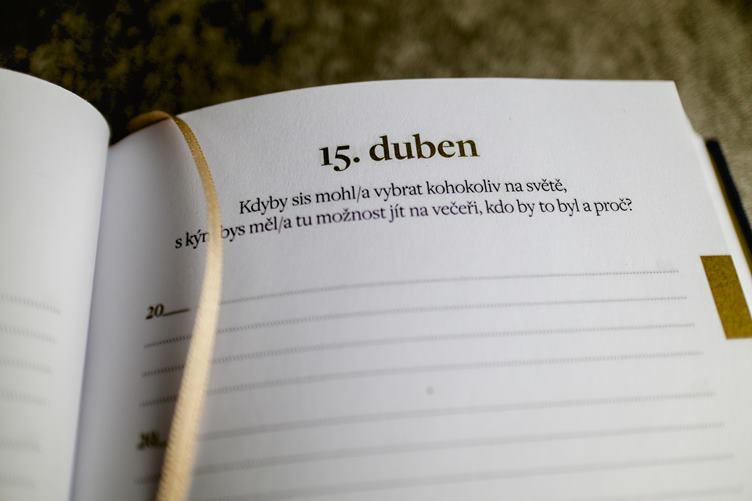 15. duben
Kdyby sis mohl/a vybrat kohokoliv na světě,
s bys měl/a tu možnost jít na večeři, kdo by to byl a proč?
20
20